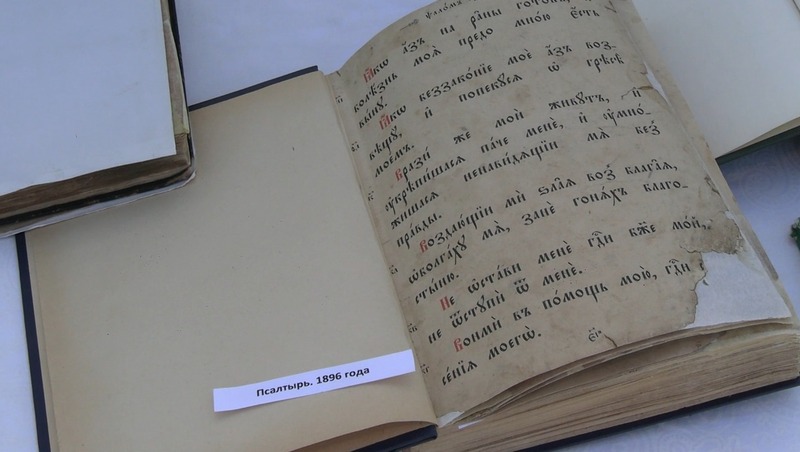 ѱало́мъ
Ꙗ҆́кѡ а҆́зъ на ра̑ны гото́въ, и҆
болѣ́знь моѧ̀ предо мно́ю є҆́сть
вы́нꙋ.
Ꙗ҆́кѡ беззако́нїе моѐ а҆́зъ воз-
вѣщꙋ̀, и҆ попекꙋ́сѧ ѡ҆ грѣсѣ̀
мое́мъ.
Врази́ же моѝ живꙋ́тъ, и҆
ᲂу҆крѣпи́шасѧ па́че менє̀, и҆ ᲂу҆мно́-
жишасѧ ненави́дѧщїи мѧ̀ без̾
пра́вды.
Воздаю́щїи мѝ ѕла̑ѧ воз̾ блага̑ѧ,
ѡ҆болга́хꙋ мѧ̀, занѐ гонѧ́хъ благо-
сты́ню.
Не ѡ҆ста́ви менє̀ гдⷭ҇и бж҃е мо́й,
не ѿстꙋпѝ ѿ менє̀.
Вонмѝ въ по́мощь мою̀, гдⷭ҇и
се́нїѧ моегѡ̀.
Псалтырь. 1896 года